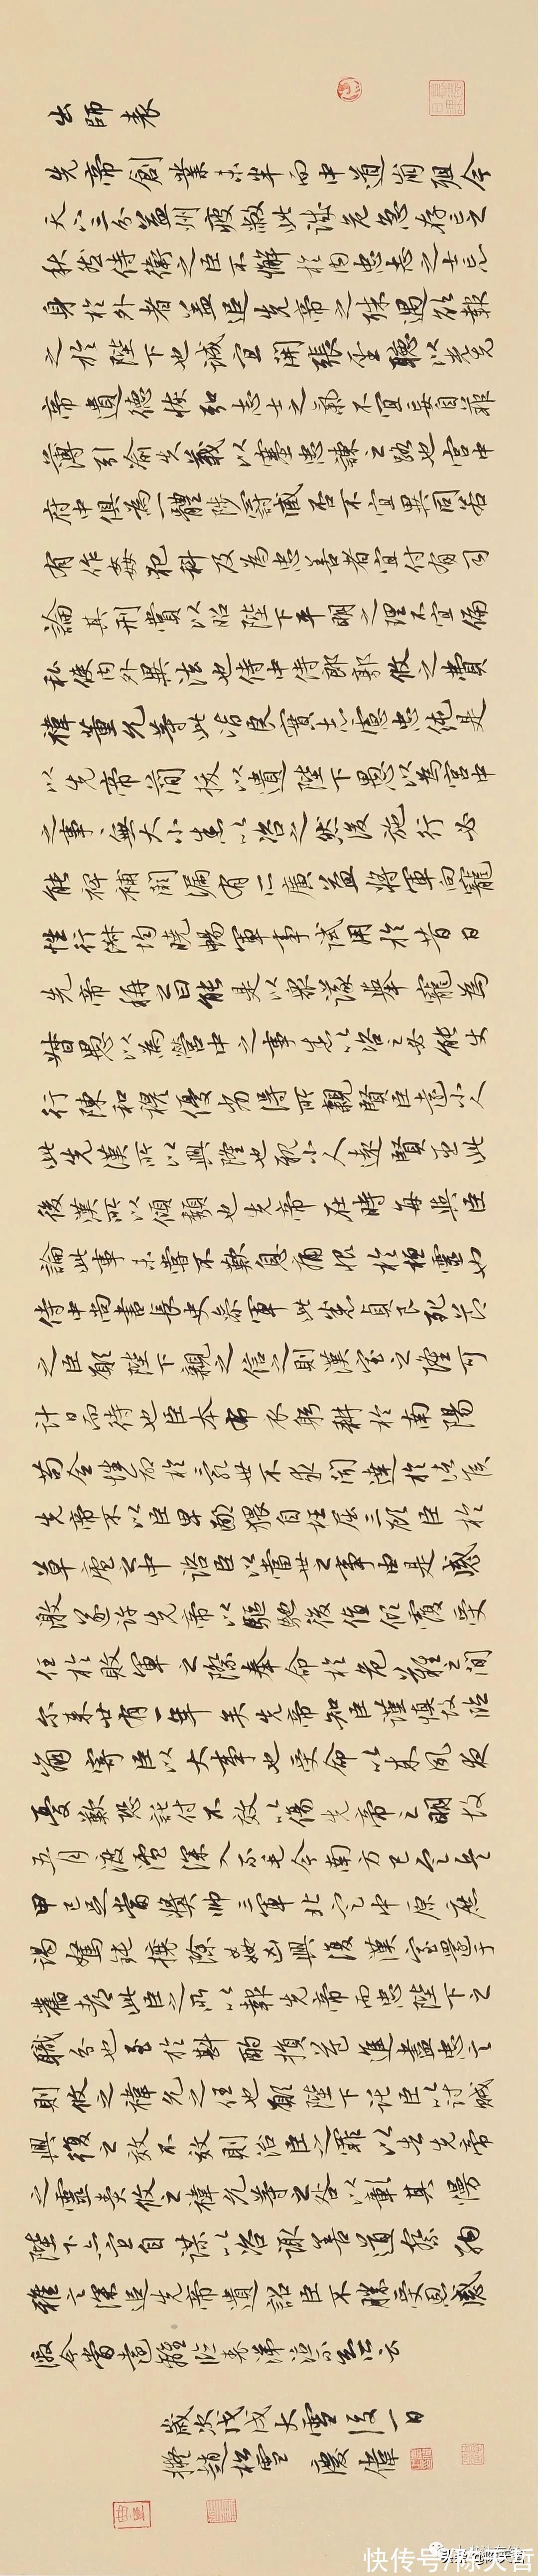 出師表
先帝創業未半而中道崩殂今
天下三分益州疲敝此誠危急存亡之
秋然侍衛之臣不懈於內忠志之士忘
身於外者蓋追先帝之殊遇欲報
之於陛下也誠宜開張聖聽以光先
帝遺德恢弘志士之氣不宜妄自菲
薄引喻失義以塞忠諫之路也宮中
府中俱為一體陟罰臧否不宜異同若
有作姦犯科及為忠善者宜付有司
論其刑賞以昭陛下平明之理不宜偏
私使內外異法也侍中侍郎郭攸之費
禕董允等此皆良實志慮忠純是
以先帝簡拔以遺陛下愚以為宮中
之事事無大小悉以咨之然後施行必
能裨補闕漏有所廣益將軍向寵
性行淑均曉暢軍事試用於昔日
先帝稱之曰能是以眾議舉寵為
督愚以為營中之事悉以咨之必能使
行陳和穆優劣得所親賢臣遠小人
此先漢所以興隆也親小人遠賢臣此
後漢所以傾頹也先帝在時每與臣
論此事未嘗不歎息痛恨於桓靈也
侍中尚書長史參軍此悉貞良死節
之臣願陛下親之信之則漢室之隆可
計日而待也臣本布衣躬耕於南陽
苟全性命於亂世不求聞達於諸侯
先帝不以臣卑鄙猥自枉屈三顧臣於
草廬之中諮臣以當世之事由是感
激遂許先帝以驅馳後值傾覆受
任於敗軍之際奉命於危難之間
尔來廿有一年矣先帝知臣謹慎故臨
崩寄臣以大事也受命以來夙夜
憂歎恐託付不效以傷先帝之明故
五月渡瀘深入不毛今南方已定兵
甲已足當獎帥三軍北定中原庶
竭駑鈍攘除姦凶興復漢室還于
舊都此臣之所以報先帝而忠陛下之
職分也至於斟酌損益進盡忠言
則攸之禕允之任也願陛下託臣以討賊
興復之效不效則治臣之罪以告先帝
之靈責攸之禕允等之咎以彰其慢
陛下亦宜自謀以咨諏善道察納
雅言深追先帝遺詔臣不勝受恩感
激今當遠離臨表涕泣不知所云
歲次戊戌大雪後一日
擬趙松雪 慶偉
快传号/陈天哲